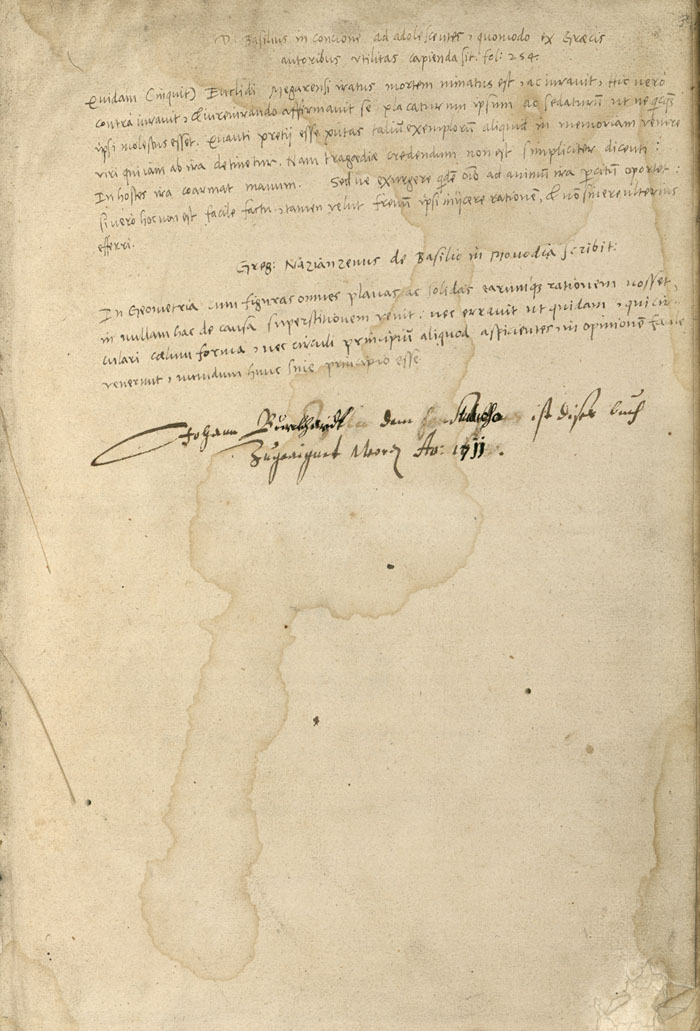 D. Basilius in concione ad adolescentes, quomodo ex Græcis
autoribus vtilitas capienda sit. fol: 254.
Quidam (inquit) Euclidi Megarensi iratus mortem minatus est, ac iurauit, hic verò
contra iurauit, & iureiurando affirmauit se placaturum ipsum ac sedaturū ut ne
ipsi molestus esset. Quanti pretij esse putas taliū exemplorum aliquid in memoriam venire
viri qui iam ab ira detinetur. Nam tragœdiæ credendum non est simpliciter dicenti:
In hostes ira coarmat manum. Sed ne exurgere quidē ad animum ira percitum oportet:
si verò hoc non est facile factu, tamen velut frenum ipsi inijcere rationem, & nō sinere ulterius
efferri.
Greg: Nazianzenus de Basilio in Monodia scribit:
In Geometria cum figuras omnes planas ac solidas earumque rationem nosset,
in nullam hac de causa superstitionem venit: nec errauit ut quidam, qui cir
culari cælum forma, nec circuli principiū aliquod asficientes, in opinionē facile
venerunt, mundum hunc sine principio esse
Johann Burkhardt dem ist dises buch
Zugeaignet Worden Ao: 1711.